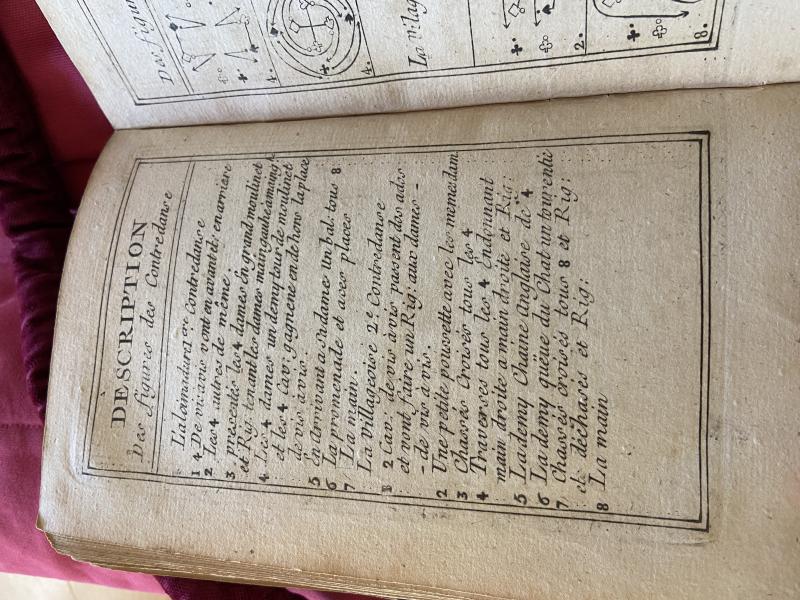 DESCRIPTION
Des figures des Contredanse
Lalamadurd 1ere Contredanse
1 4 De vis avis vont en avant et en arriere
2 Les 4 autres de même
3 presentés les 4 dames En grand moulinet
et Rig: tems les dames main gauhe amaing
4 Les 4 dames un demy tour de moulinet
et les 4 Cav: gagnene en de hors la place
de vis à vis
5 En arrivant a sa dame un bal: tous 8
6 La promenade et a ces places
7 La main
La Villageoise 2e Contredanse
1 2 Cav: de vis à vis passent dos a dos
et vont faire un Rig: aux dames -
- de vis à vis.
2 Une petite poussette avec les meme dam
3 Chassés Croisés tous les 4
4 Traverses tous les 4 Endonnant
main droite a main droite et Rig:
5 La demy Chaine Anglaise de 4
6 La demy queüe du Chat un tour entie
7 Chassés croisés tous 8 et Rig:
et dechasés et Rig:
8 La main
Des figur
4.
4.
La Villag
2.
8.